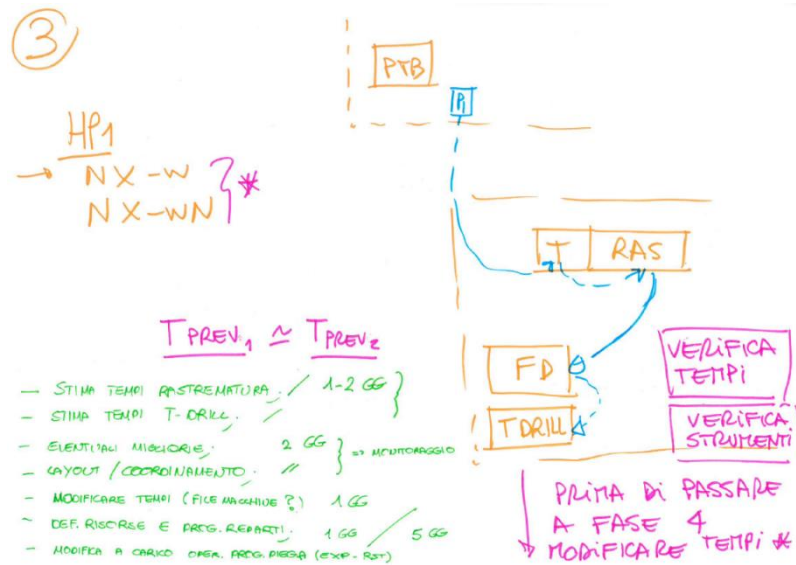 3
HP1
→ NX-W
NX-WN } *
PTB
P1
T RAS
FD
T DRILL
VERIFICA
TEMPI
VERIFICA
STRUMENTI
T PREV.1 ≃ T PREV2
— STIMA TEMPI RASTREMATURA. / 1-2 GG
- STIMA TEMPI T-DRILL. /
- EVENTUALI MIGLIORIE. 2 GG
- LAYOUT / COORDINAMENTO. // } => MONITORAGGIO
- MODIFICARE TEMPI (FILE MACCHINE ?) 1 GG
- DEF. RISORSE E PROG. REPARTI. 1 GG / 5 GG
- MODIFICA A CARICO OPER. PROG. PIEGA (EXP-RST)
PRIMA DI PASSARE
A FASE 4
MODIFICARE TEMPI *